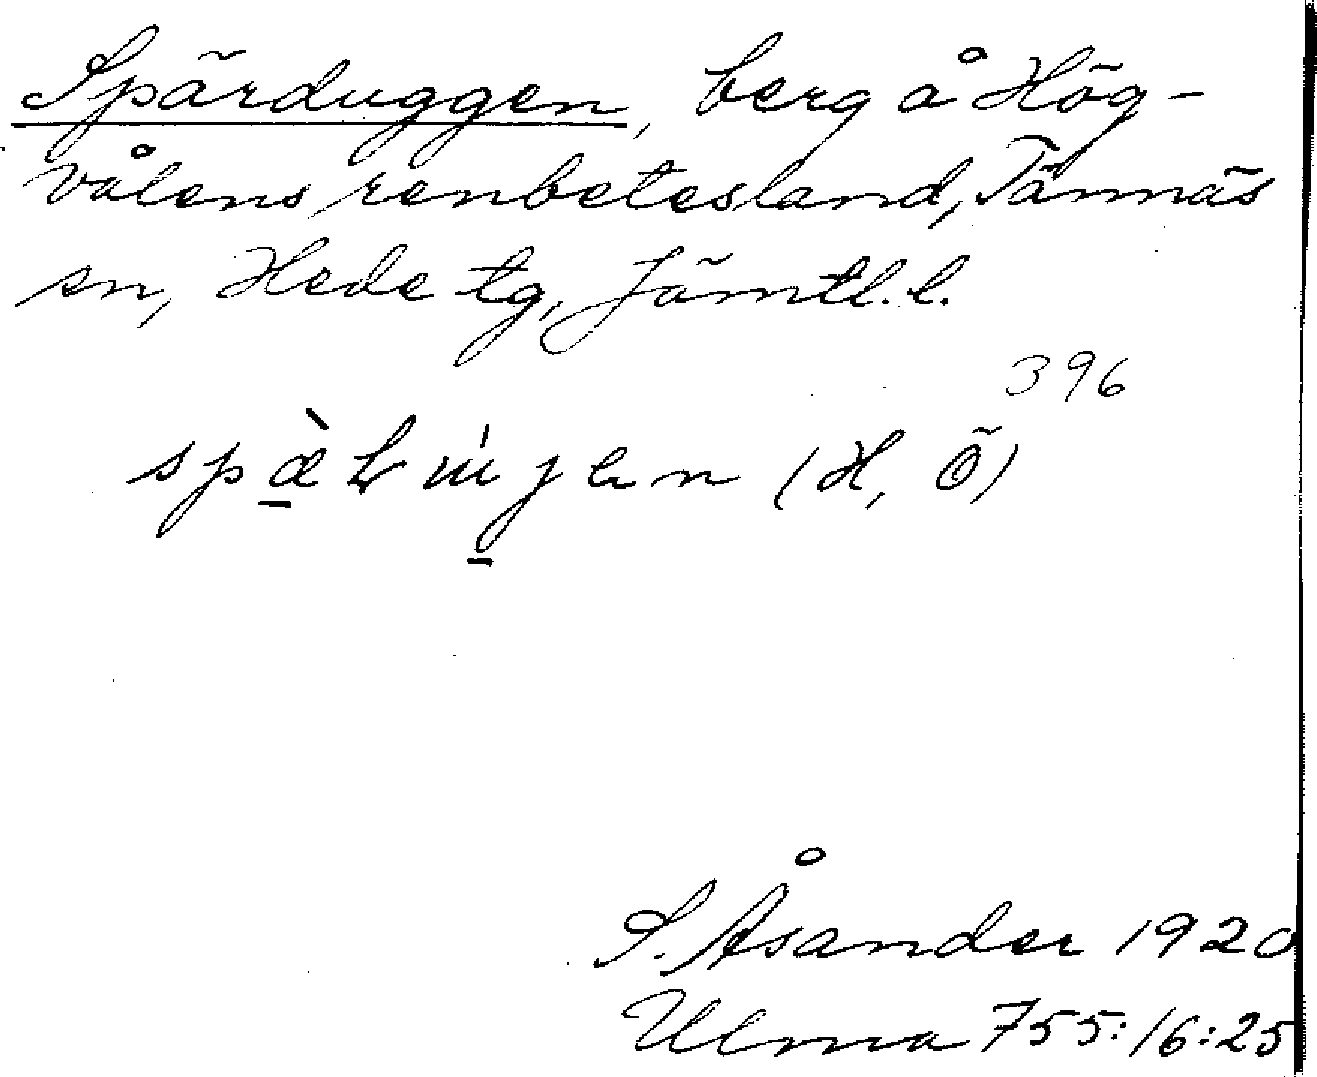 Spärduggen, berg å Hög-
vålens renbetesland, Tännäs
sn, Hede tg, Jämtl. l.
396
(H, Ö)
S. Åsander 1920
Ulma 755:16:25